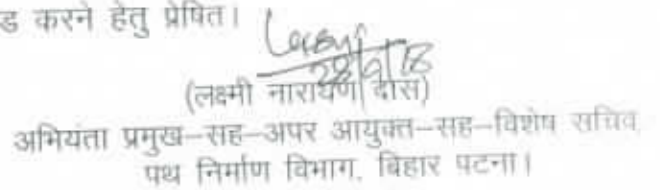 ड करने हेतु प्रेषित।
28/9/18
(लक्ष्मी नारायण दास)
अभियंता प्रमुख-सह-अपर आयुक्त-सह-विशेष सचिव
पथ निर्माण विभाग, बिहार पटना।